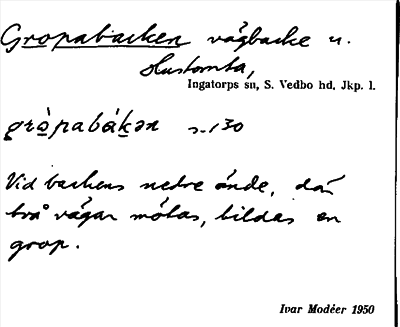 Gropabacken vägbacke n.
Hustomta,
Ingatorps sn, S. Vedbo hd. Jkp. l.
grò̱pabáḵən s. 130
Vid backens nedre ände, där
två vägar mötas, bildas en
grop.
Ivar Modéer 1950